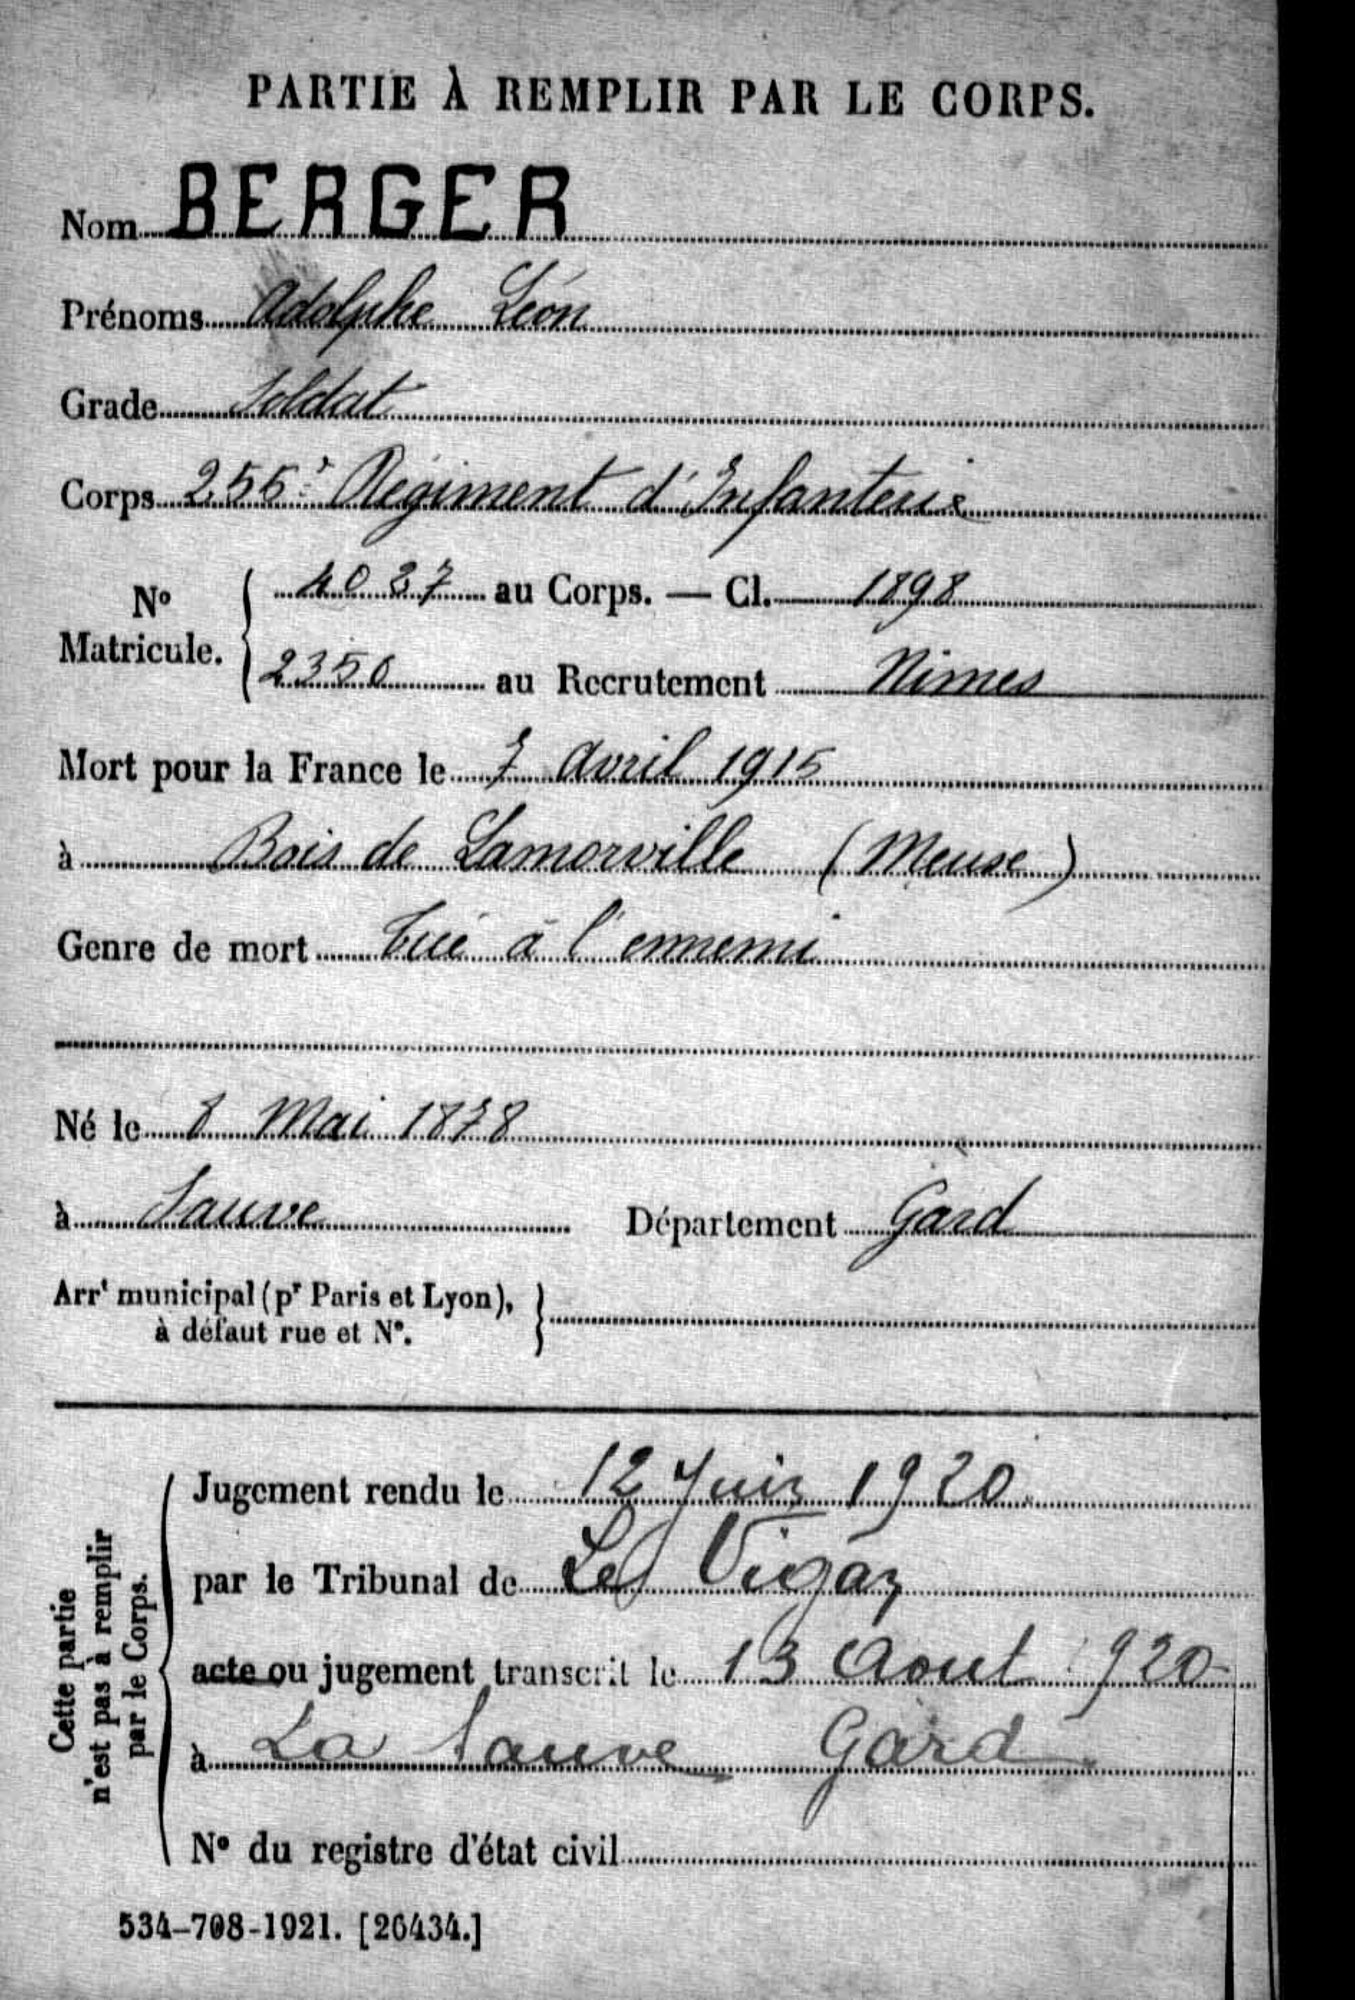 PARTIE À REMPLIR PAR LE CORPS.
Nom BERGER
Prénoms Adolphe Léon
Grade Soldat
Corps 255e Régiment d'Infanterie
N° Matricule. 4037 au Corps. — Cl. 1898
2350 au Recrutement Nimes
Mort pour la France le 7 Avril 1915
à Bois de Lamorville (Meuse)
Genre de mort Tué à l'ennemi
Né le 8 Mai 1878
à Sauve Département Gard
Arrt municipal (pr Paris et Lyon),
à défaut rue et N°.
Cette partie
n'est pas à remplir
par le Corps.
Jugement rendu le 12 Juin 1920
par le Tribunal de Le Vigan
acte ou jugement transcrit le 13 Aout 1920
à La Sauve Gard
N° du registre d'état civil
534-708-1921. [26434.]